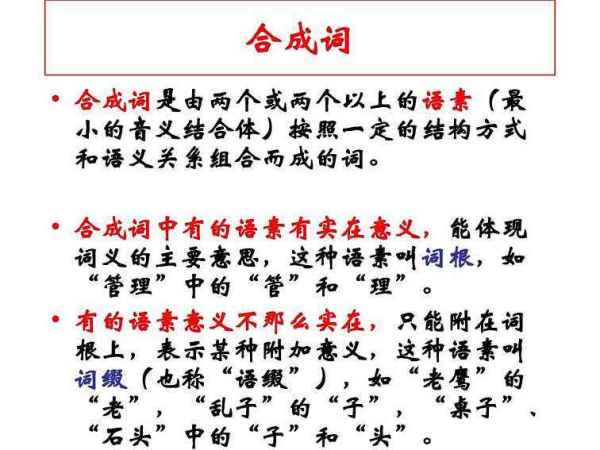 合成词
• 合成词是由两个或两个以上的语素（最
小的音义结合体）按照一定的结构方式
和语义关系组合而成的词。
• 合成词中有的语素有实在意义，能体现
词义的主要意思，这种语素叫词根，如
“管理”中的“管”和“理”。
• 有的语素意义不那么实在，只能附在词
根上，表示某种附加意义，这种语素叫
词缀（也称“语缀”），如“老鹰”的
“老”，“乱子”的“子”，“桌子”、
“石头”中的“子”和“头”。